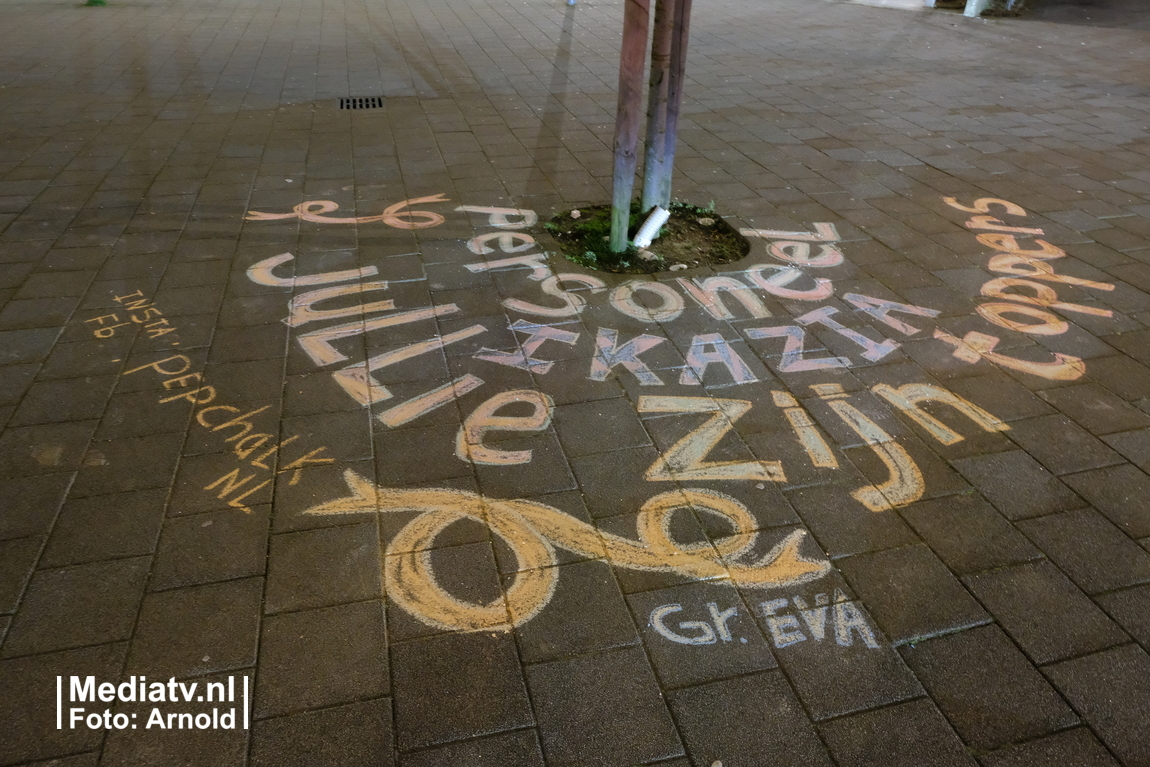 personeel
IKAZIA
JULLIe zijn toppers
INSTA,
Fb,
PEPchaLK
NL
Gr. EVA
Mediatv.nl
Foto: Arnold